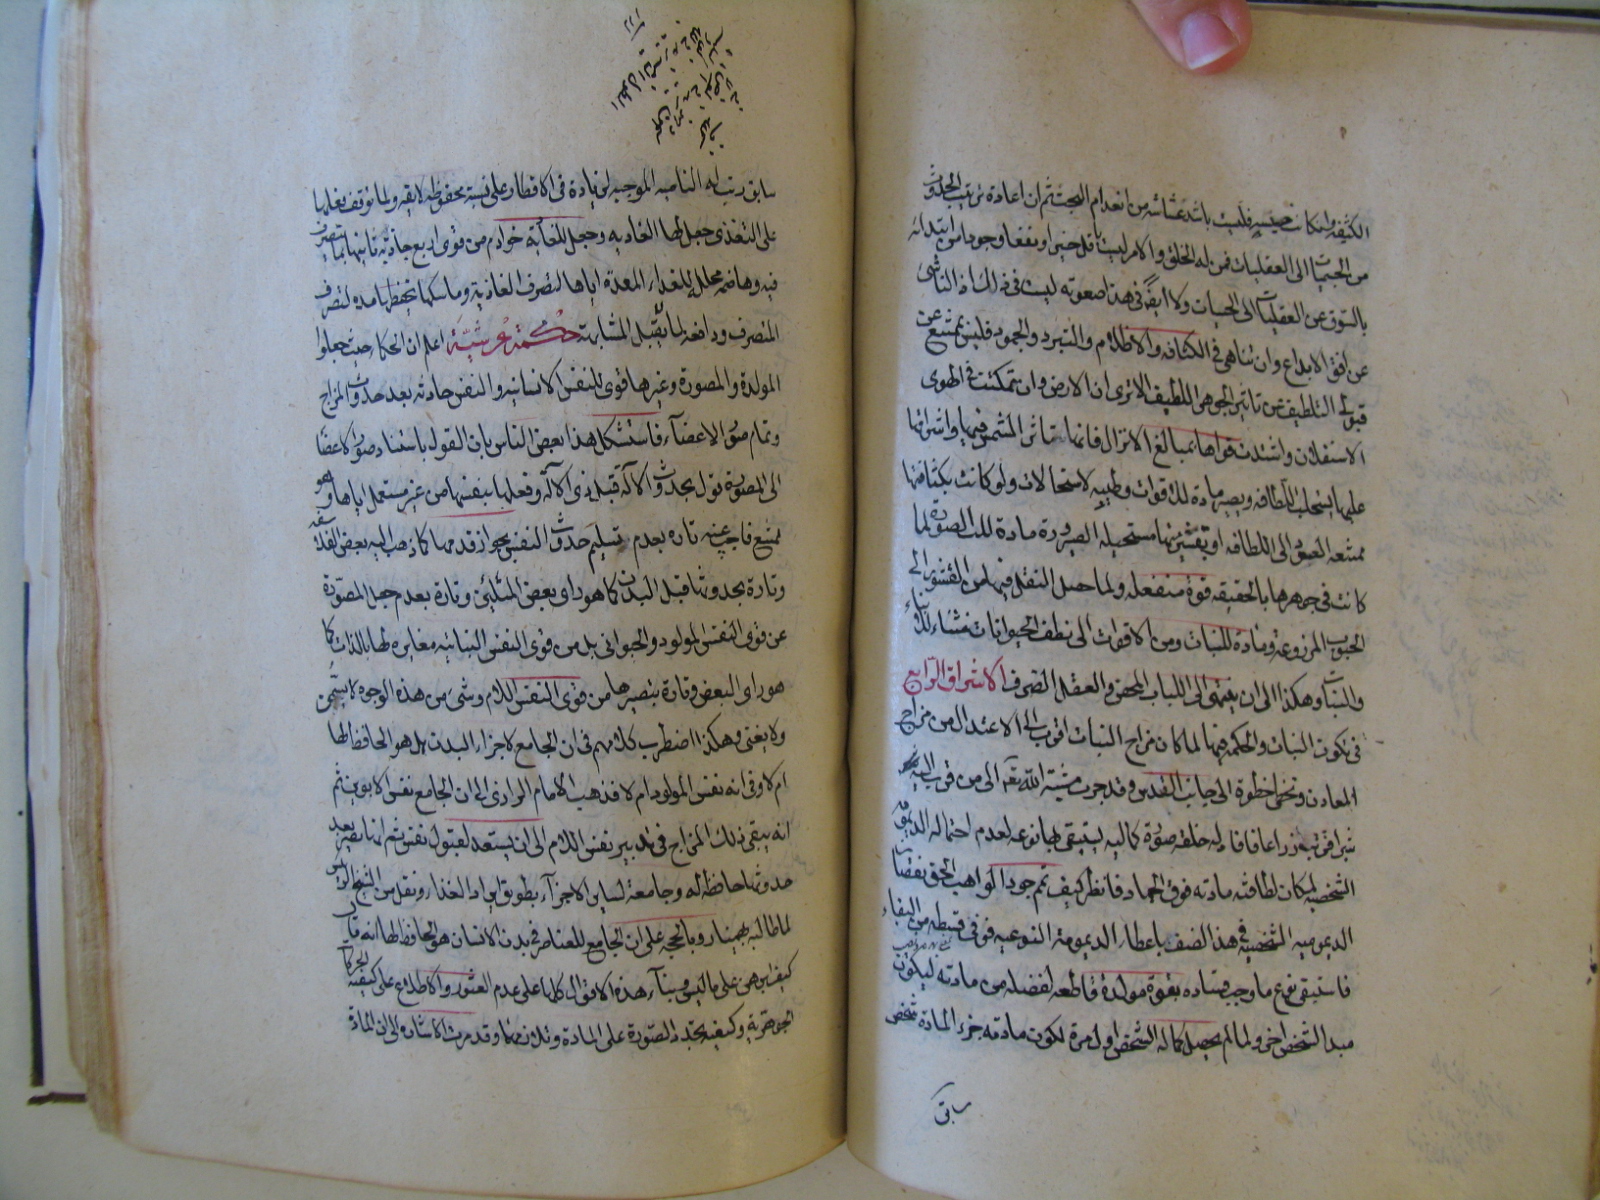 الكثيفة وان كانت خسيسة فليست باشد عشاشه من انعدام البحث ثم ان اعادة ترتيب الحدوث
من الجسميات الى العقليات فمن له الخلق والامر ليست باقل خيرا ونفعا وجودا من ابتدائه
بالسوق عن العقليات الى الحسيات ولا ايضا في هذا صعوبة ليست في ذلك اذ الناشى
عن افق الابداع وان تناهى في الكثافة والاظلام والتبرد والجمود فليس بممتنع عن
قبول التلطيف من تاثير الجوهر اللطيف الا ترى ان الارض وان تمكنت في المهوى
الاسفلان واشتدت قواها بمبالغ الانزال فانها بتاثير الشمس فيها واشراقها
عليها يستجلب اللطافة ويصير مادة للاقوات وطيبة لاستحالات ولو كانت بكثافتها
ممتنعة العود الى اللطافة او يقشرنها مستحيلة الصيرورة مادة لتلك الصورة لما
كانت في جوهرها بالحقيقة قوة منفعلة ولما حصل النقل فيها من القشور الى
الحبوب المزروعة ومادة للنبات ومن الاقوات الى نطف الحيوانات منشاء للانشاء
والنبات وهكذا الى ان ينتهى الى اللباب المحض والعقل الصرف الاشراق الرابع
في تكون النبات والحكمة فيها لما كان مزاج النبات اقرب الى الاعتدال من مزاج
المعادن وتخطى خطوة الى جانب القدس وقد جرت مشية الله تعالى من قرب اليه
شبرا قرب ذراعا فافاد له خلقة صورة كمالية يستبقى لها نوعه لعدم احتماله الديمومة
الشخصية لمكان لطافة مادته فوق الجماد فانظر كيف تمم جود الواهب الحق نقصان
الديمومية الشخصية في هذا الصنف باعطاء الديمومة النوعية فوفى قسطه من البقاء
فاستبقى نوع ما وجب فساده بقوة مولدة قاطعة لفضلة من مادته ليكون
مبدا الشخص اخر ولما لم يحصل كماله الشخص اول مرة لكون مادته جزء المادة شخص
سابق
سابق رتب له النامية الموجبة لزيادة في الاقطار على نسبة محفوظة لايقة ولما توقف فعلها
على التغذى جعل لها الغاذية وجعل للغاذية خوادم من قوى اربع جاذبة تاتيها بما يتصرف
فيه وهاضمة محللة للغذاء المعدة اياها لتصرف الغاذية وماسكة تحفظها مدة لتصرف
المتصرف ودافعة لما لا يقبل المشابهة حكمة عرشية اعلم ان الحكماء حيث جعلوا
المولدة والمصورة وغيرها قوى للنفس الانسانية والنفس حادثة بعد حدوث المزاج
وتمام صور الاعضاء فاستشكل هذا بعض الناس بان القول باستناد صور الاعضاء
الى المصورة قول بحدوث الآلة قبل ذى الآلة وفعلها بنفسها من غير مستعمل اياها وهو
ممتنع فاجيب عنه تارة بعدم تسليم حدوث النفس بجواز قدمها كما ذهب اليه بعض الفلاسفة
وتارة بحدوثها قبل البدن كما هو راى بعض المليين وتارة بعدم جعل المصورة
عن قوى النفس المولود والحيوانى بل من قوى النفس النباتية مغايرة لها بالذات كما
هو راى البعض وتارة بتصيرها من قوى النفس اللام وشىء من هذه الوجوه لا يسمن
ولا يغنى وهكذا اضطرب كلامهم في ان الجامع لاجزاء البدن هل هو الحافظ لها
ام لا وفى انه نفس المولود ام لا فذهب الامام الرازى الى ان الجامع نفس الابوين ثم
انه يبقى ذلك المزاج في تدبير نفس اللام الى ان يستعد لقبول نفس ثم انها تصير بعد
حدوثها حافظة له وجامعة لساير الاجزاء بطريق ايراد الغذاء ونقل من الشيخ الرئيس
لما طالبه بهمنيار وبالحجة على ان الجامع للعناصر في بدن الانسان هو الحافظ لها انه قال
كيف ابرهن على ما ليس وبناء هذه الاقوال كلها على عدم العثور والاطلاع على كيفية الحركة
الجوهرية وكيفية تجدد الصورة على المادة وتلازمهما وقد مرت الاشارة الى ان المادة